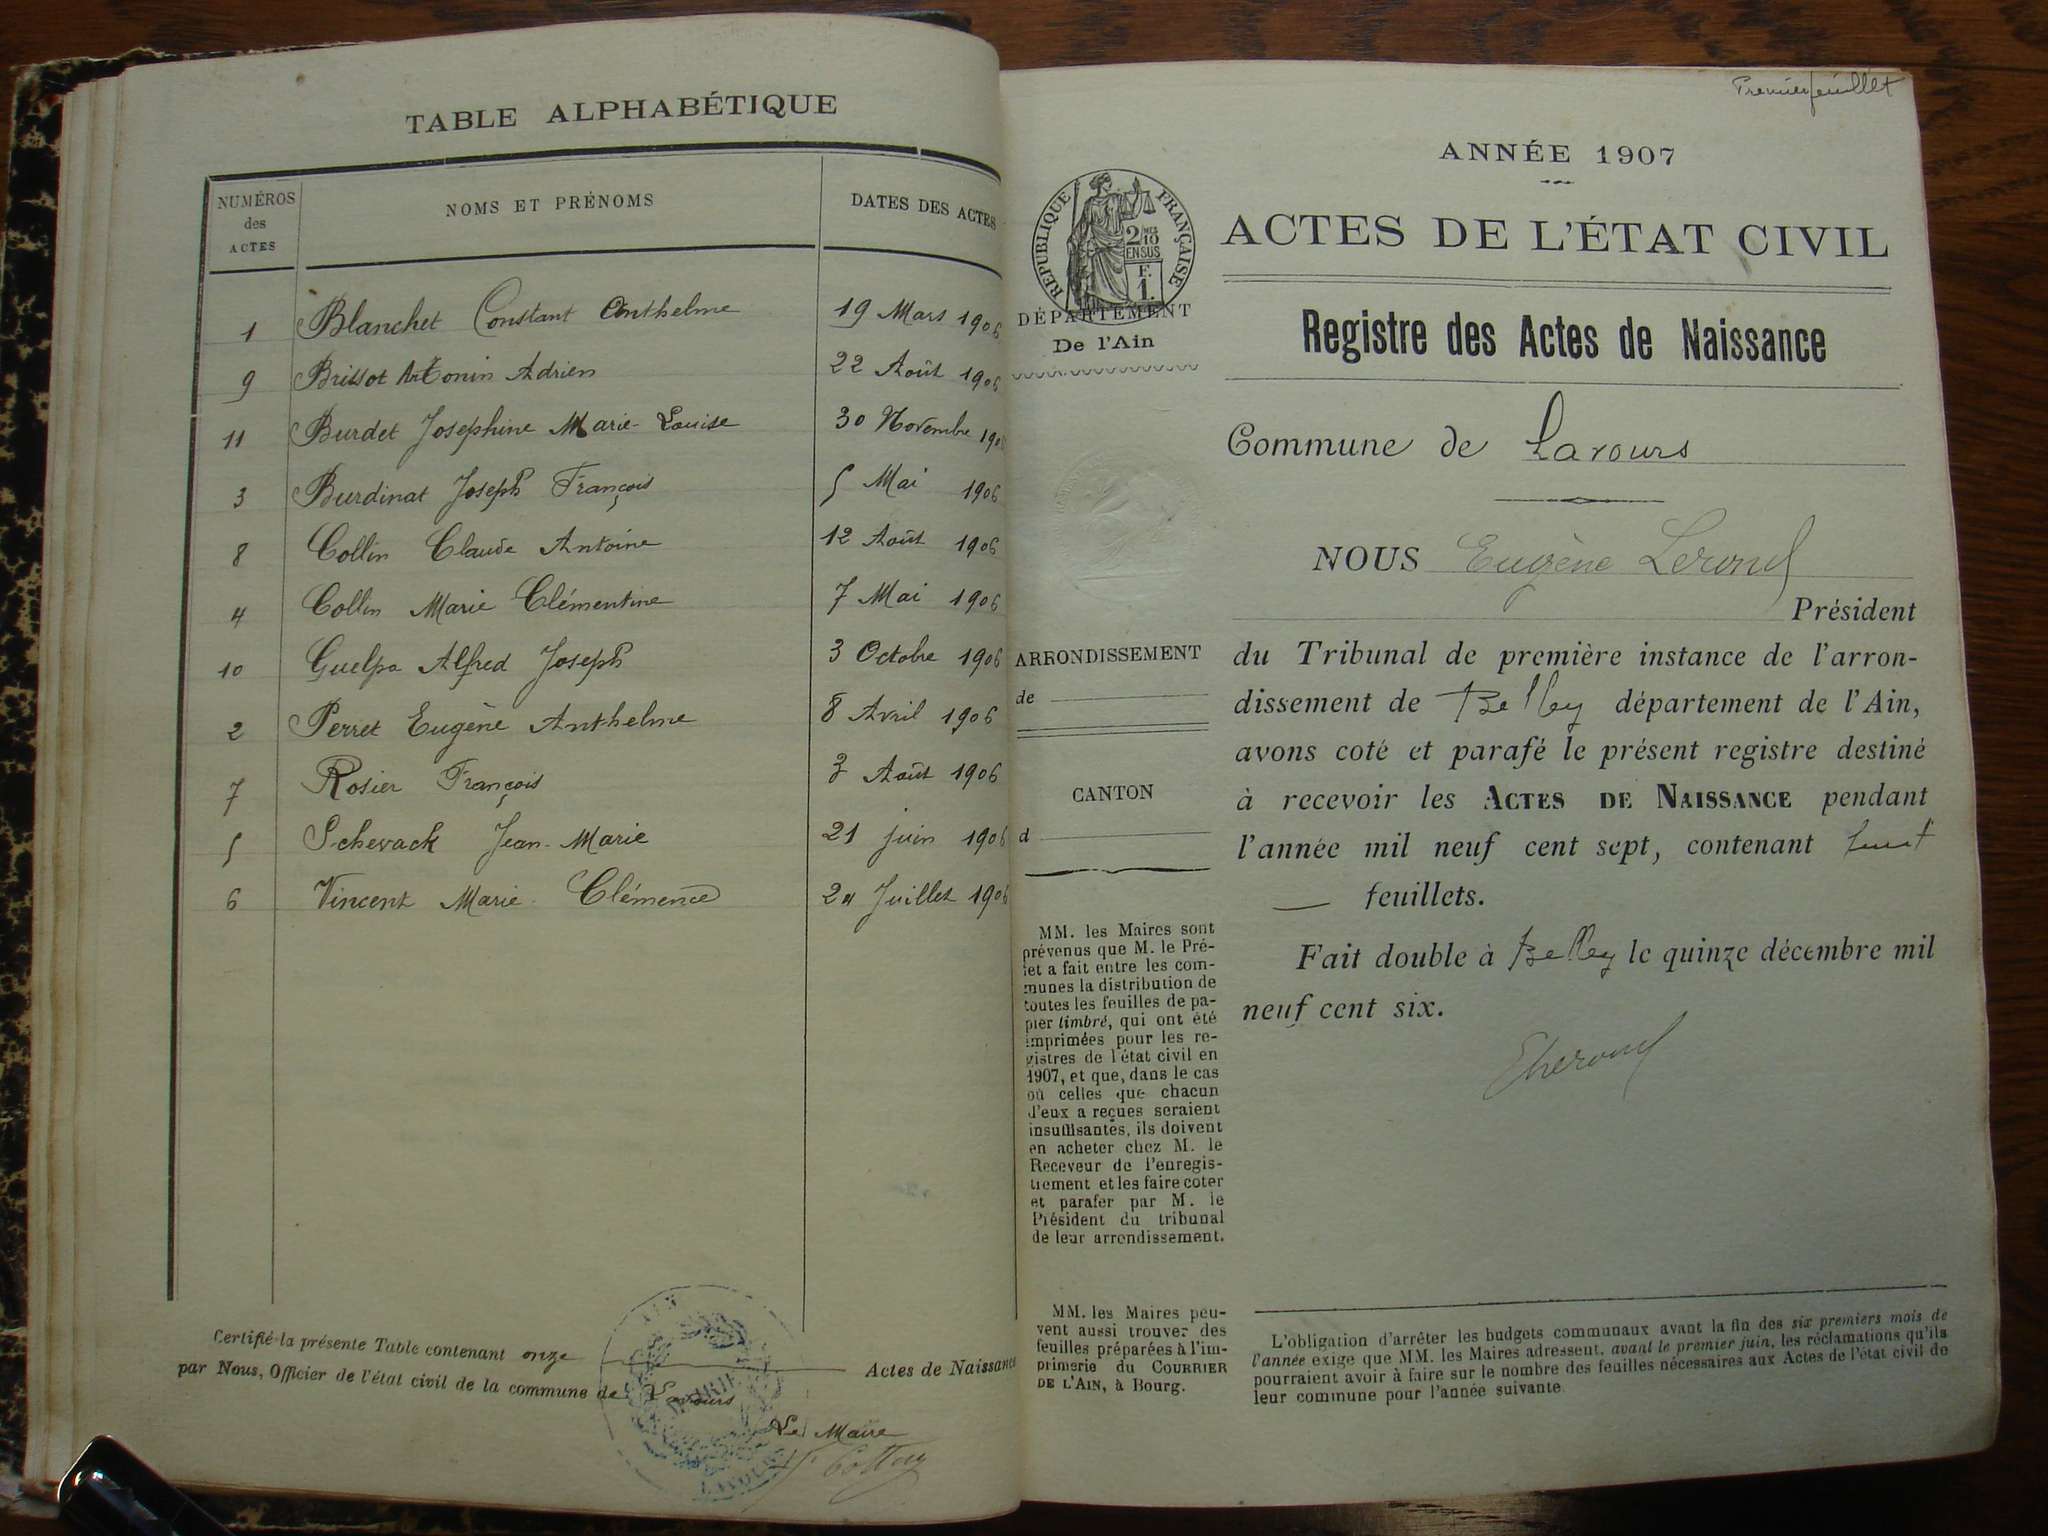 TABLE ALPHABÉTIQUE
NUMÉROS des ACTES
NOMS ET PRÉNOMS
DATES DES ACTES
1 Blanchet Constant Anthelme 19 Mars 1906
9 Brissot Antonin Adrien 22 Août 1906
11 Burdet Josephine Marie-Louise 30 Novembre 1906
3 Burdinat Joseph François 5 Mai 1906
8 Collin Claude Antoine 12 Août 1906
4 Collin Marie Clémentine 7 Mai 1906
10 Guelpa Alfred Joseph 3 Octobre 1906
2 Perret Eugène Anthelme 8 Avril 1906
7 Rosier François 3 Août 1906
5 Schevack Jean-Marie 21 juin 1906
6 Vincent Marie Clémence Juillet 1906
Certifié la présente Table contenant onze Actes de Naissance
par Nous, Officier de l'état civil de la commune de Lavours
Le Maire
AIN
MAIRIE
LAVOURS
Premier feuillet
ANNÉE 1907
RÉPUBLIQUE FRANÇAISE
2 MES 10
EN SUS
F.
1.
ACTES DE L'ÉTAT CIVIL
DÉPARTEMENT
De l'Ain
Registre des Actes de Naissance
Commune de Lavours
NOUS Eugène Lerond
Président
ARRONDISSEMENT
de
CANTON
d
du Tribunal de première instance de l'arron-
dissement de Belley département de l'Ain,
avons coté et parafé le présent registre destiné
à recevoir les ACTES DE NAISSANCE pendant
l'année mil neuf cent sept, contenant huit
feuillets.
Fait double à Belley le quinze décembre mil
neuf cent six.
MM. les Maires sont
prévenus que M. le Pré-
fet a fait entre les com-
munes la distribution de
toutes les feuilles de pa-
pier timbré, qui ont été
imprimées pour les re-
gistres de l'état civil en
1907, et que, dans le cas
où celles que chacun
d'eux a reçues seraient
insuffisantes, ils doivent
en acheter chez M. le
Receveur de l'enregis-
trement et les faire coter
et parafer par M. le
Président du tribunal
de leur arrondissement.
MM. les Maires peu-
vent aussi trouver des
feuilles préparées à l'im-
primerie du COURRIER
DE L'AIN, à Bourg.
L'obligation d'arrêter les budgets communaux avant la fin des six premiers mois de
l'année exige que MM. les Maires adressent, avant le premier juin, les réclamations qu'ils
pourraient avoir à faire sur le nombre des feuilles nécessaires aux Actes de l'état civil de
leur commune pour l'année suivante.